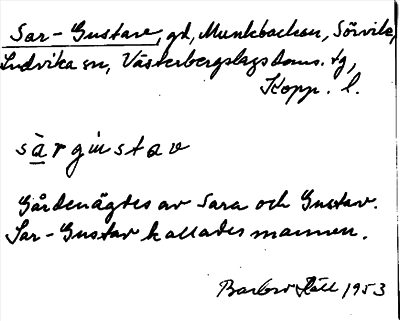 Sar-Gustave, gd, Munkbacken, Sörvik,
Ludvika sn, Västerbergslags doms. tg,
Kopp. l.
sàrgustav
Gården ägdes av Sara och Gustav.
Sar-Gustav kallades mannen.
Barbro Häll 1953